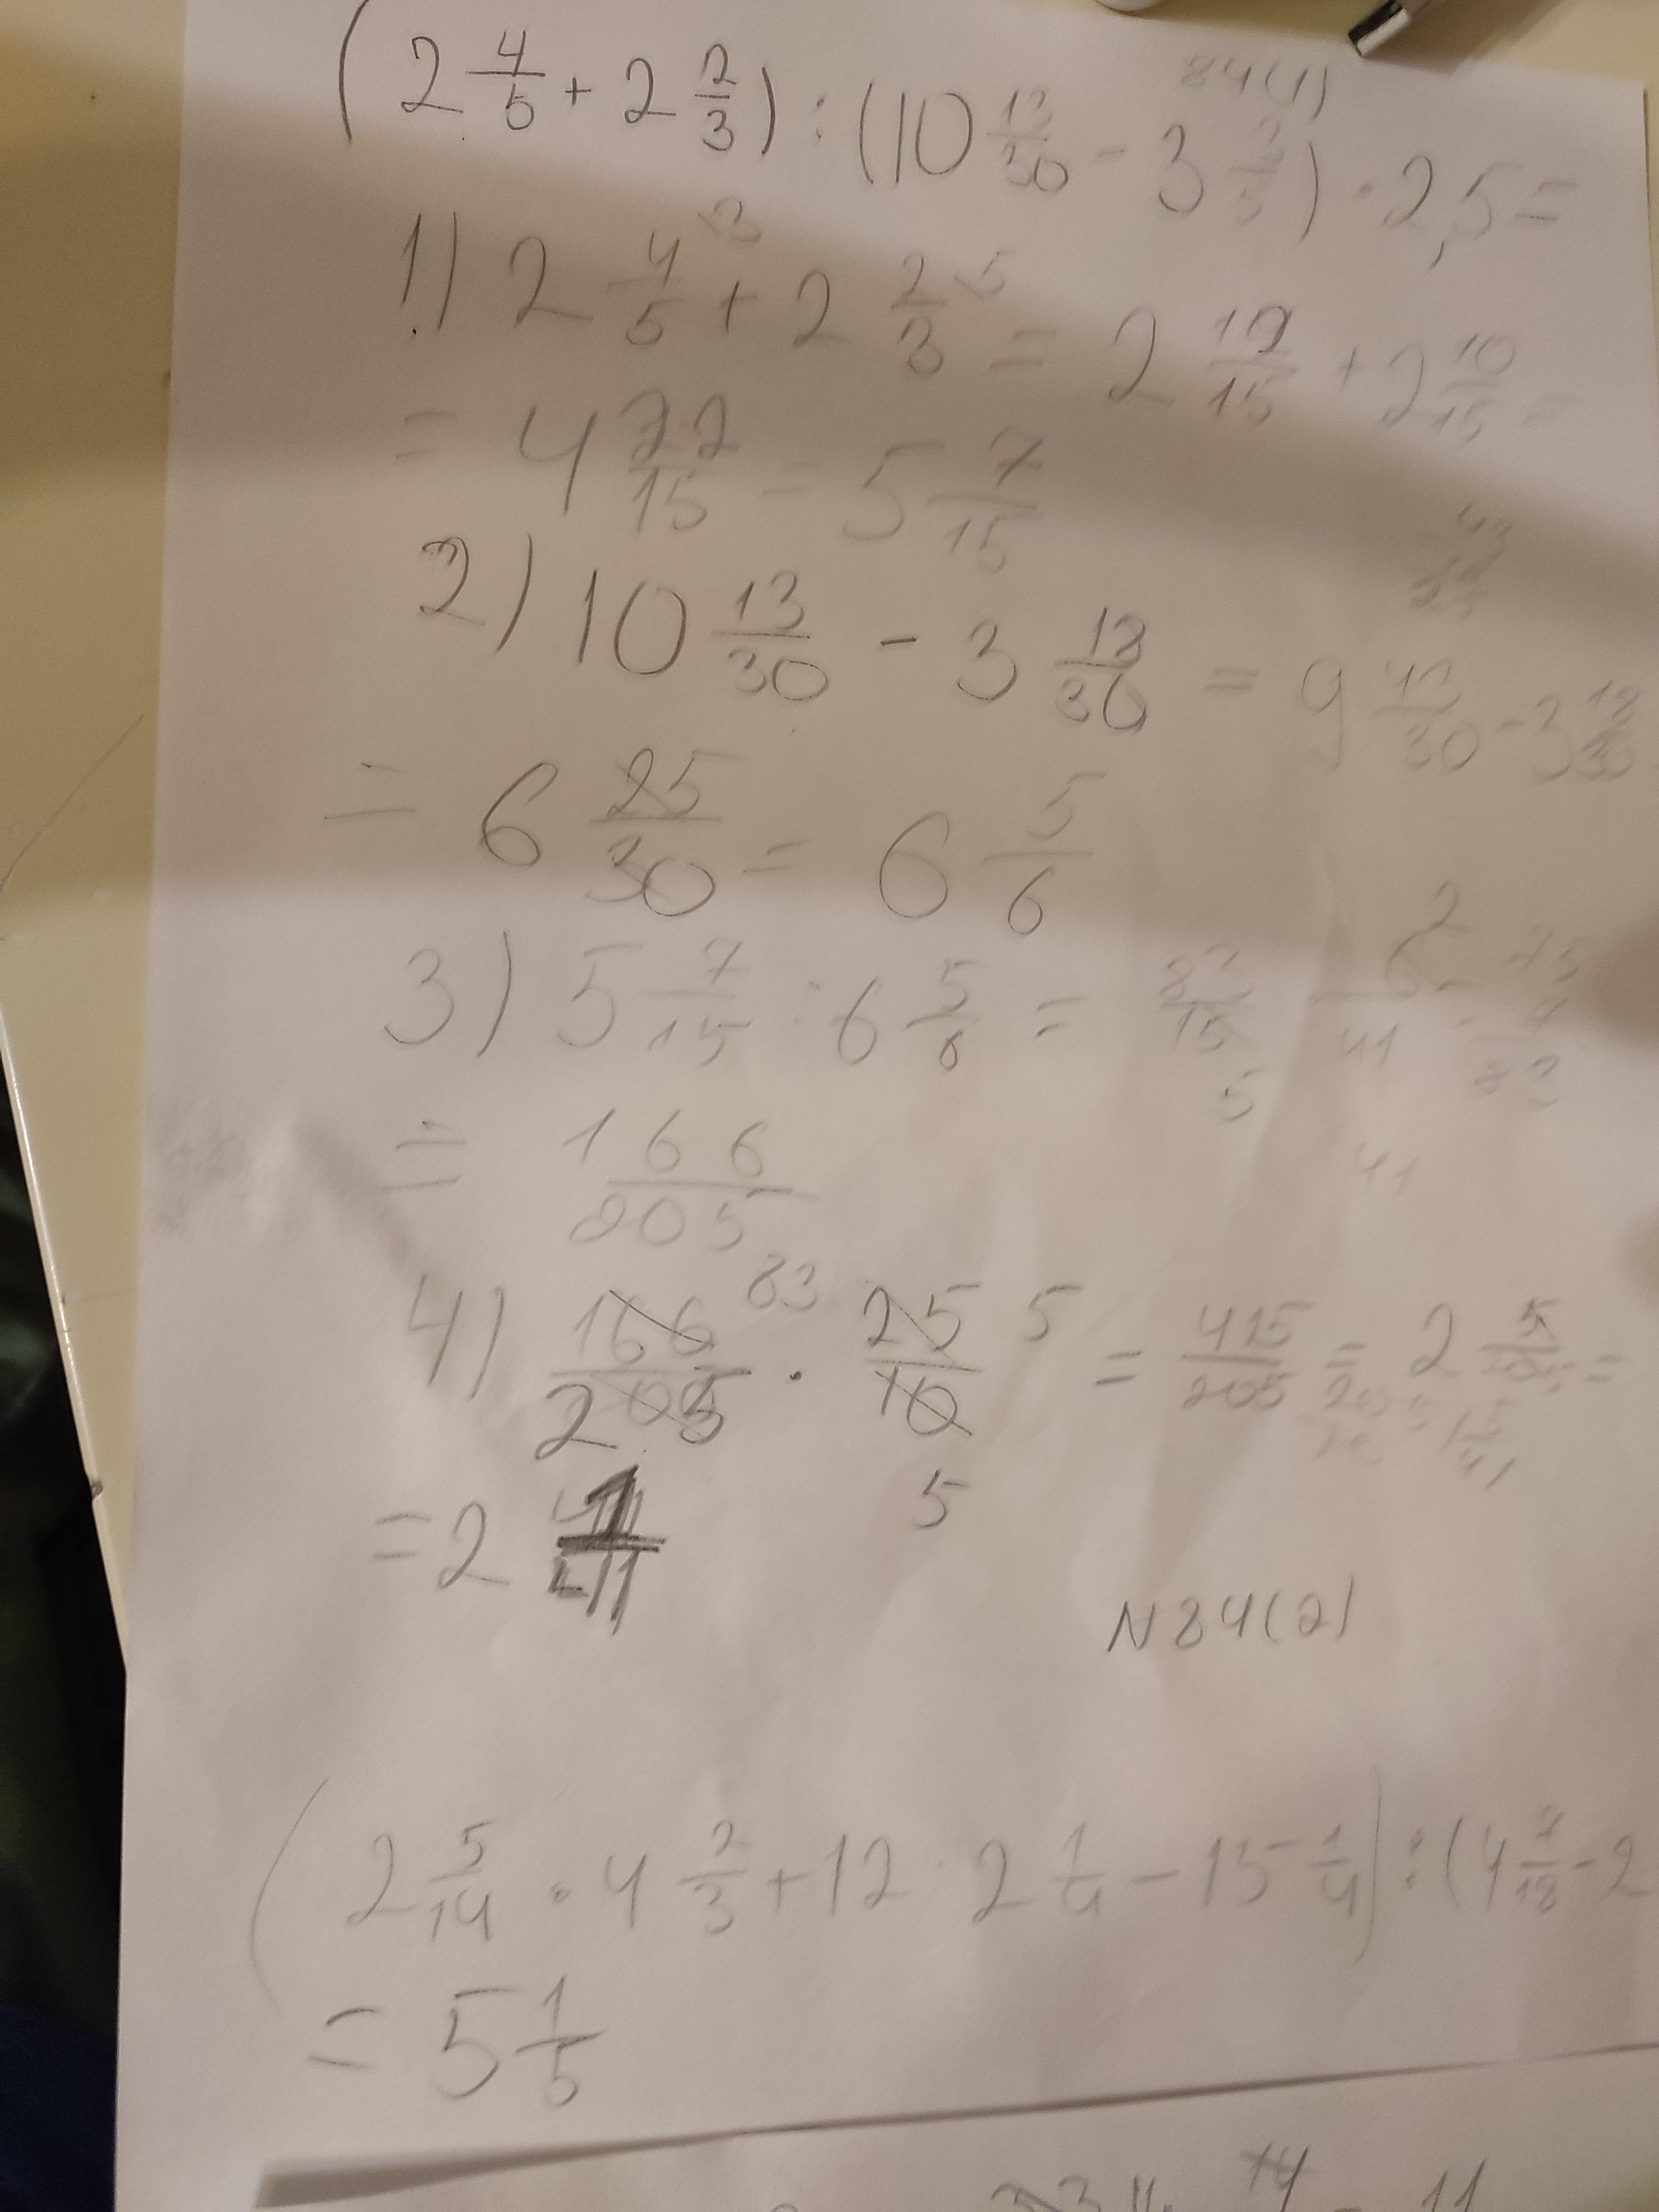 84(1)
(2 4/5 + 2 2/3) : (10 13/30 - 3 3/5) · 2,5 =
1) 2 4/5 ·3 + 2 2/3 ·5 = 2 12/15 + 2 10/15 =
= 4 22/15 = 5 7/15
2) 10 13/30 - 3 18/30 = 9 43/30 - 3 18/30
= 6 25/30 = 6 5/6
3) 5 7/15 : 6 5/6 = 82/15 6/41 2
5
41
= 166/205
4) 166/205 83 · 25/10 5 = 415/205 = 2 5/205 =
2 5
= 2 1/41
N84(2)
(2 5/14 · 4 2/3 + 12 · 2 1/4 - 15 1/4) : (4 7/18 - 2
= 5 1/5
14
11